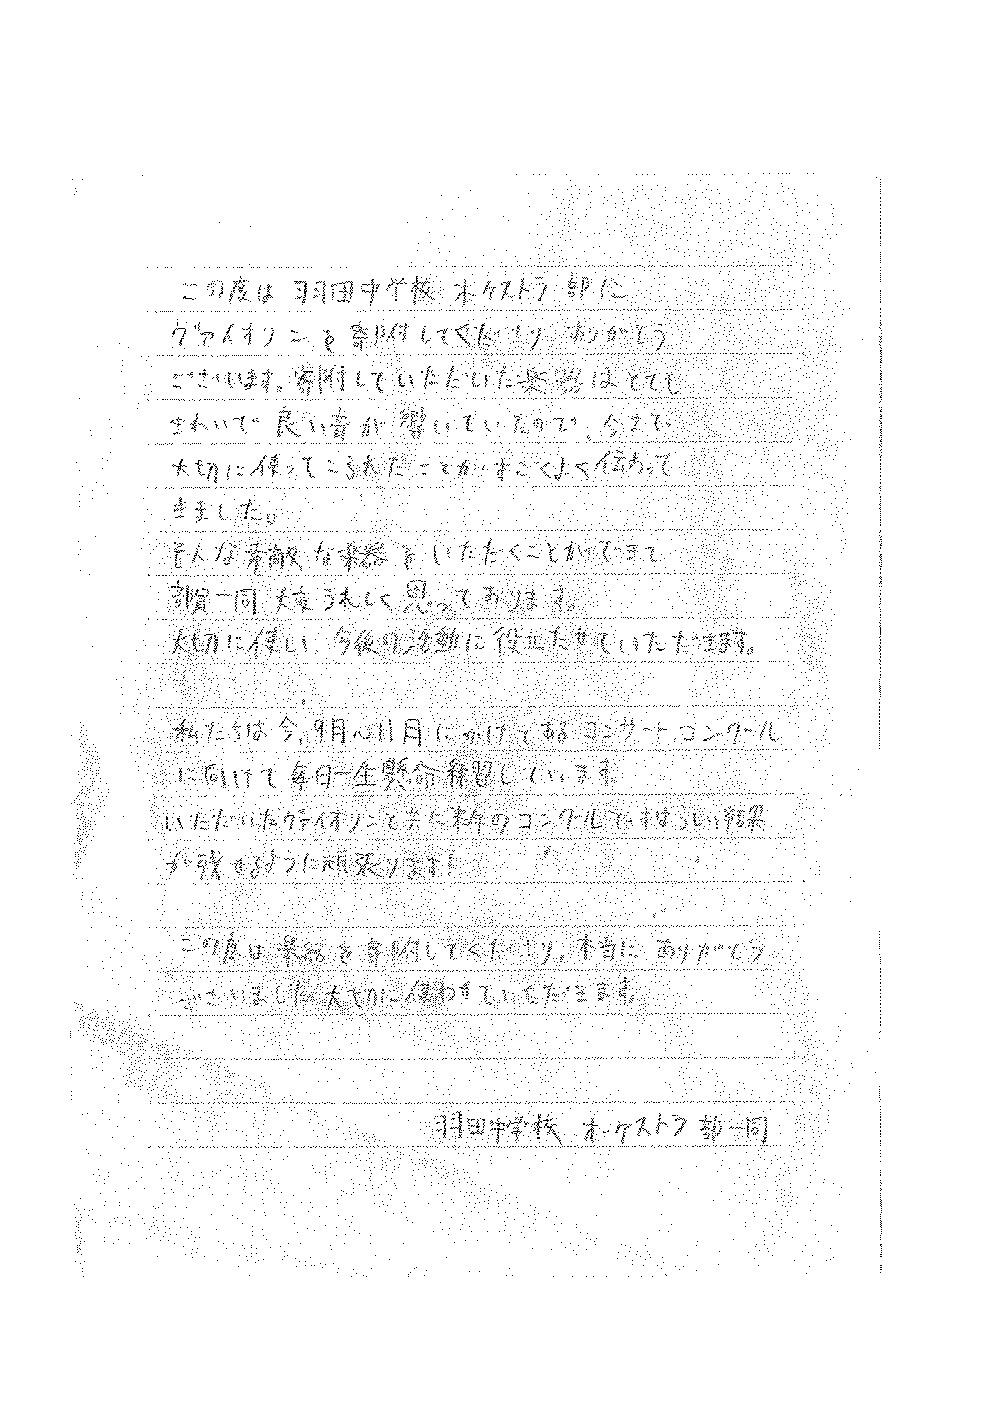 この度は 羽田中学校 オーケストラ 部に
ヴァイオリンを寄附してくださり ありがとう
ございます。寄附していただいた楽器はとても
きれいで 良い音が 響いていたので、今まで
大切に使ってこられたことがすごくよく伝わって
きました。
そんな素敵な楽器をいただくことができて
部員一同 大変うれしく思っております。
大切に使い 今後の活動に役立たせていただきます。
私たちは今、9月〜11月にかけてあるコンサート、コンクール
に向けて毎日一生懸命練習しています。
いただいたヴァイオリンと共に本年のコンクールで
が残せるように頑張ります!
この度は楽器を寄附してくださり、本当に ありがとう
ございました。大切に使わせていただきます。
羽田中学校 オーケストラ 部一同